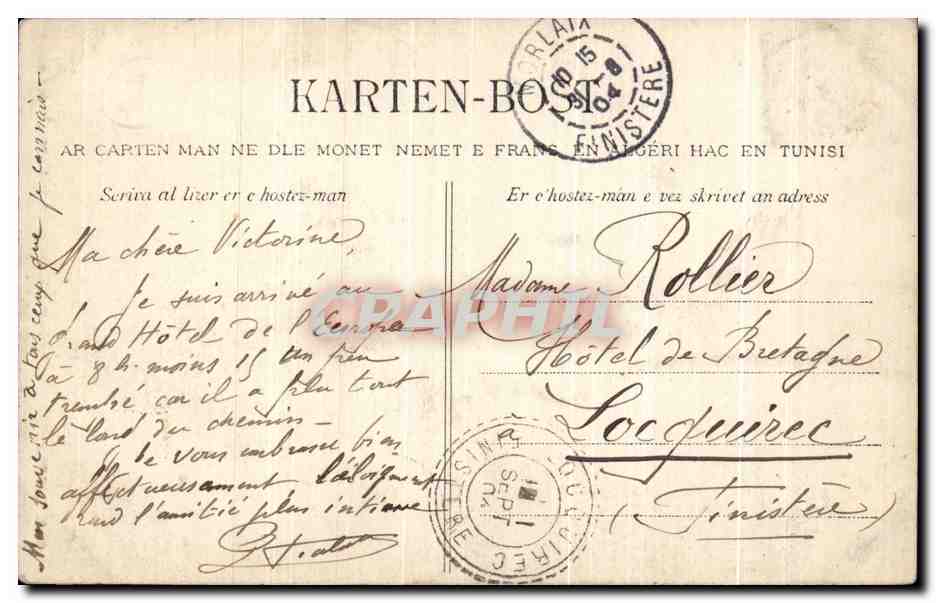 KARTEN-BOST
AR CARTEN MAN NE DLE MONET NEMET E FRANS, EN ALGÉRI HAC EN TUNISI
Scriva al lizer er c'hostez-man
Er c'hostez-mán e vez skrivet an adress
Ma chère Victorine,
Je suis arrivé au
Grand Hôtel de l'Europe
à 8 h. moins 15 un peu
trempé car il a plu tout
le long du chemin –
Je vous embrasse bien
affectueusement l'éloignement
rend l'amitié plus intime
Mon souvenir à tous ceux que je connais –
Madame Rollier
Hôtel de Bretagne
Locquirec
(Finistère)
MORLAIX
10 15
FINISTERE
LOCQUIREC
1
SEPT
04
FINISTERE
CPAPHIL